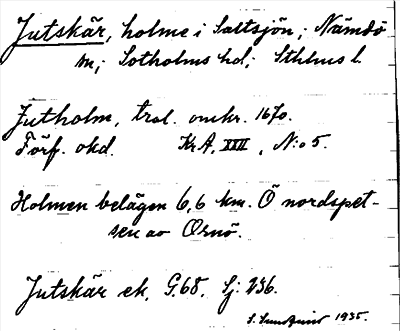 Jutskär, holme i Saltsjön; Nämdö
sn; Sotholms hd; Sthlms l.
Jutholm, trol. omkr. 1670.
Förf. okd. KrA, XXII, N:o 5.
Holmen belägen 6,6 km. Ö nordspet-
sen av Ornö.
Jutskär ek. G.68. Sj: 236.
S. Sundquist 1935.